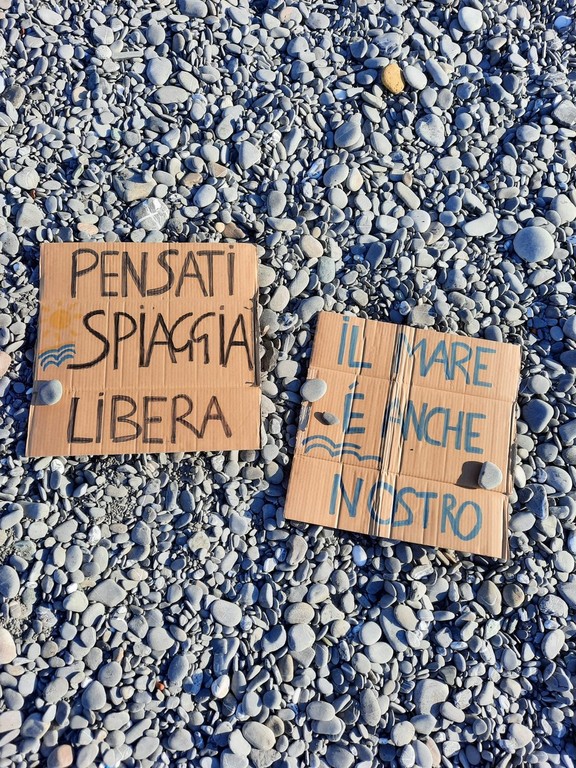 PENSATI
SPIAGGIA
LIBERA
IL MARE
É ANCHE
NOSTRO